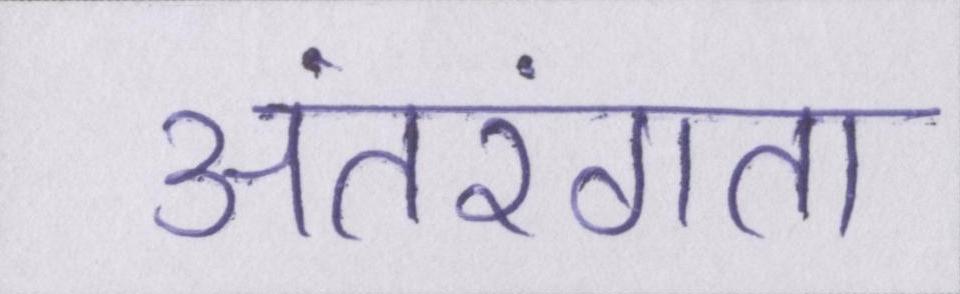 अंतरंगता